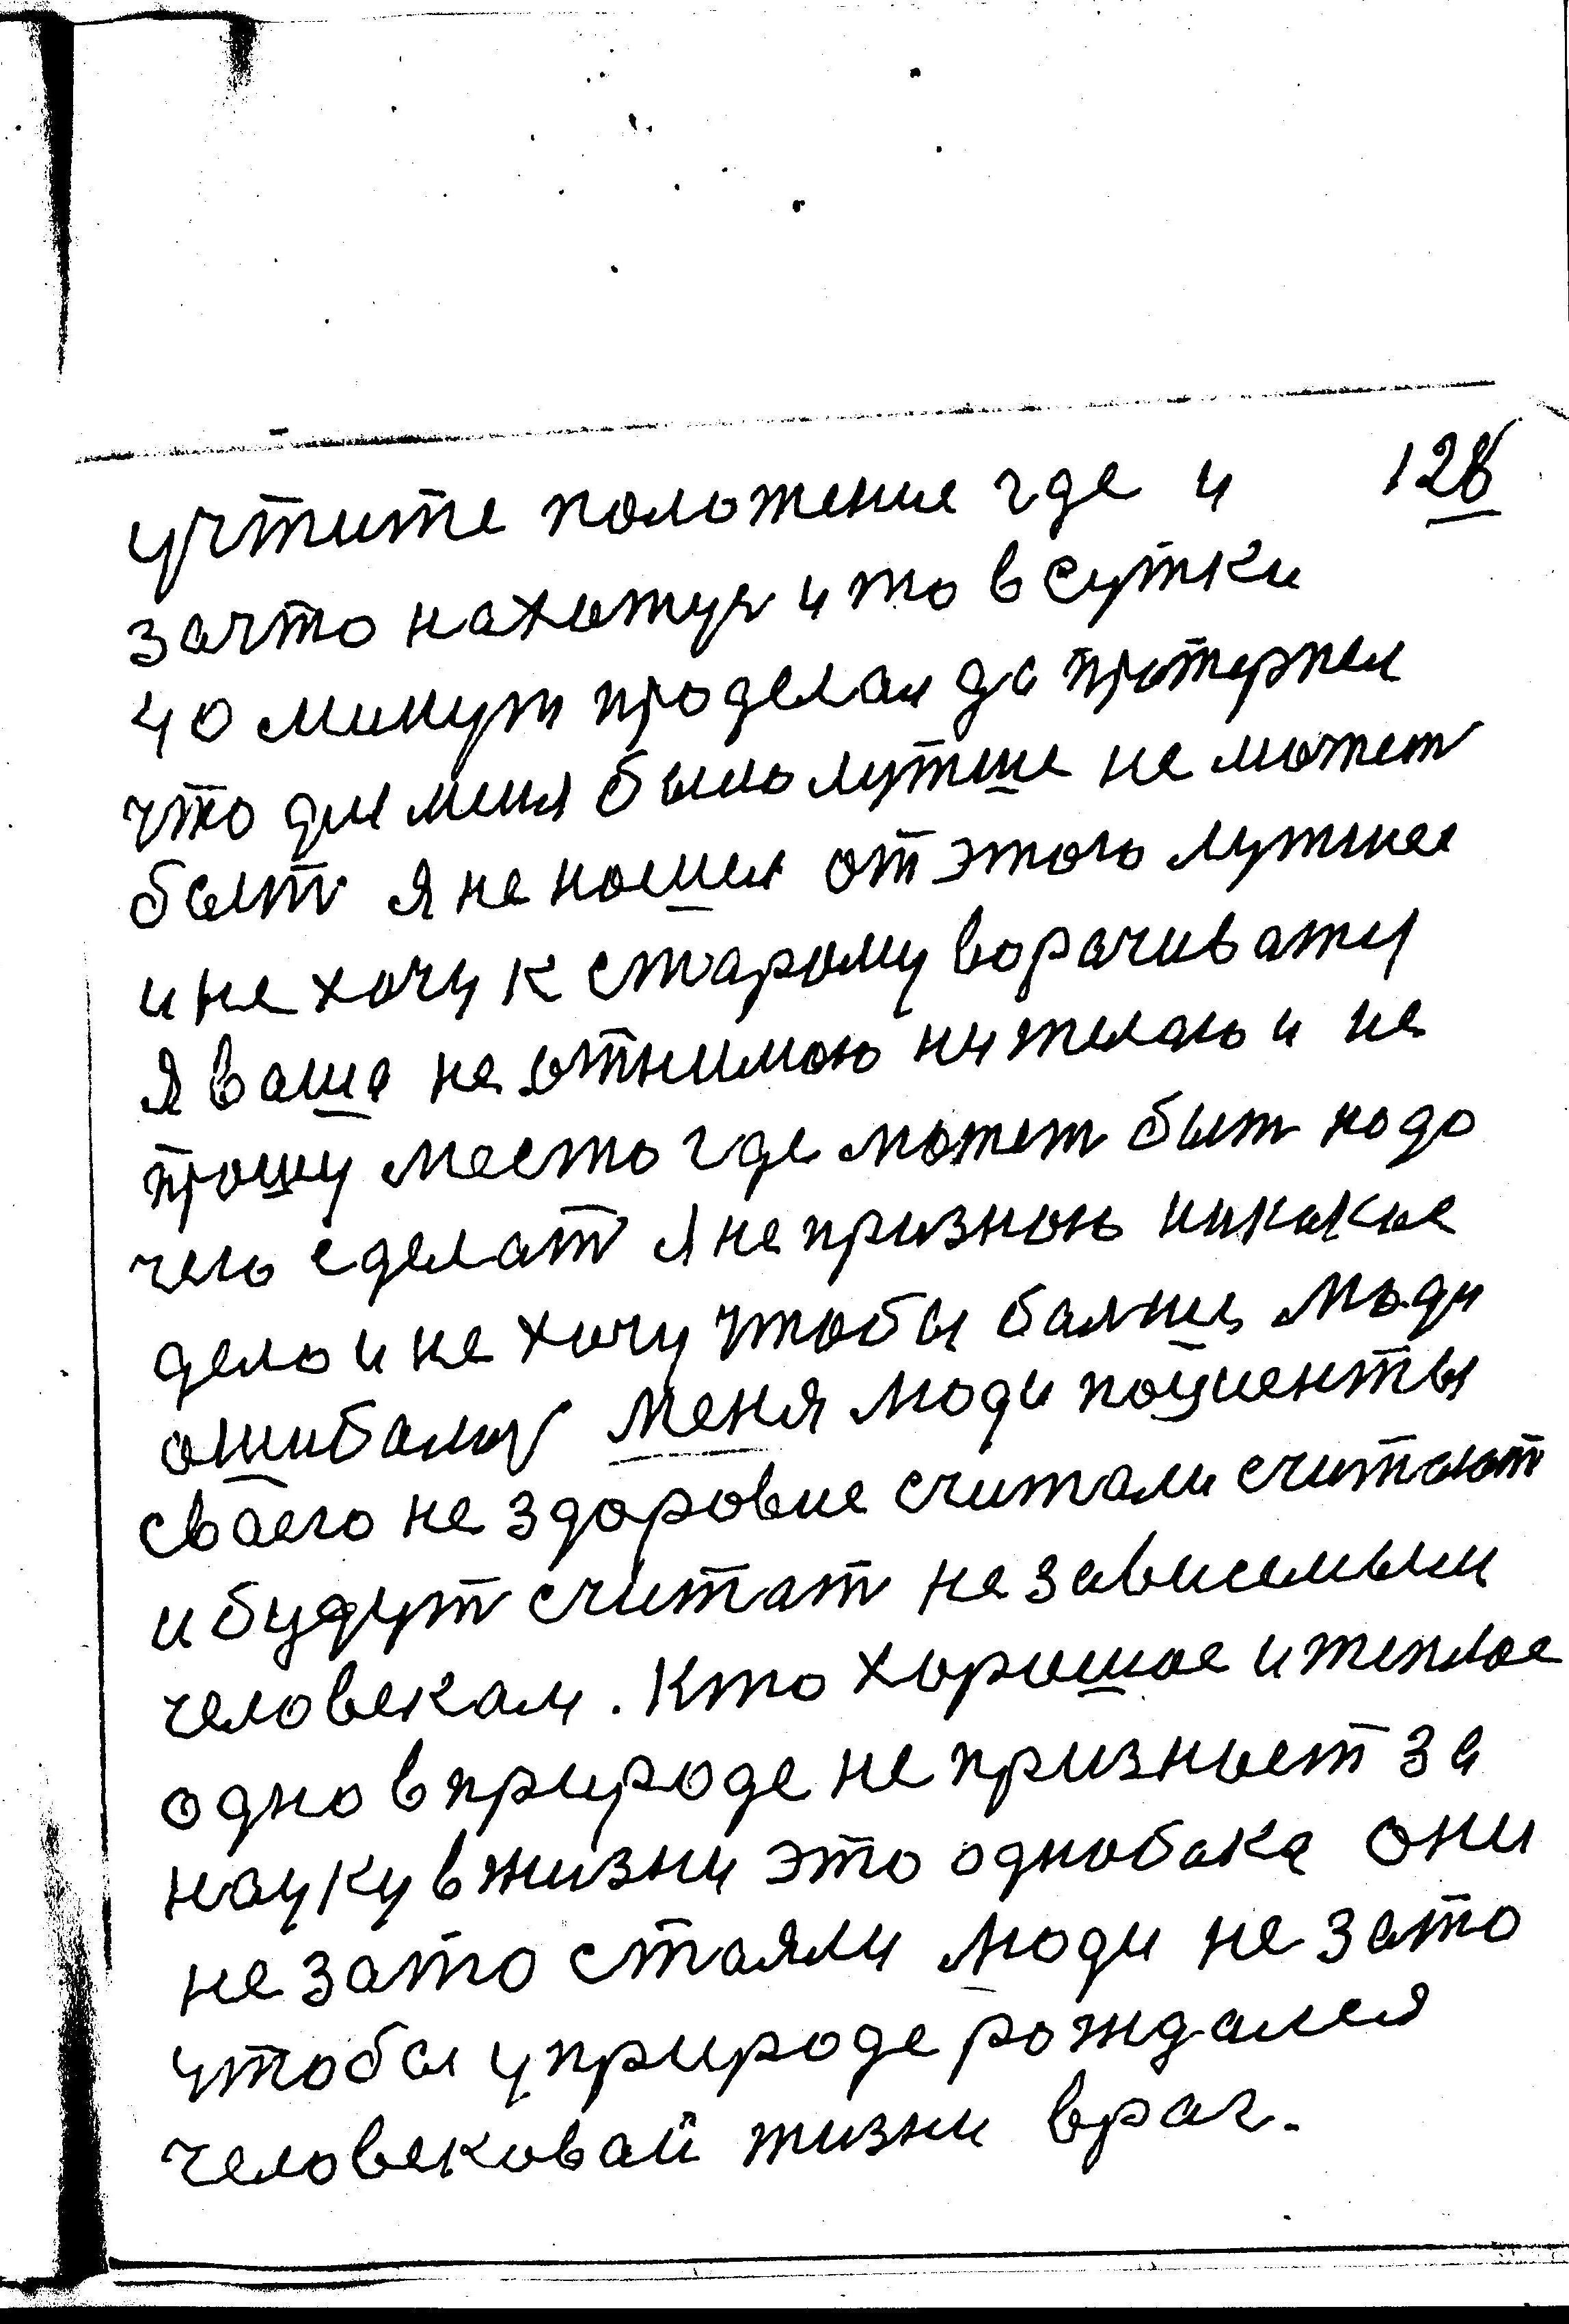 учтите положение где и 128
зачто нахотуя и то в сутки
40 минут проделал да протерпел
что для меня было лутше не может
быт я не нашел от этого лутшее
и не хочу к старому ворачиватця
я ваше не отнимаю ни желаю и не
прошу место где может быт надо
чего сделат я не признаю никакое
дело и не хочу чтобы балние люди
ошибалис меня люди поциенты
сваего не здоровие считали считают
и будут считат не зависимым
человекам. Кто хорошое и теплое
одно в природе не признает за
науку в жизни это однобока они
не зато стаяли люди не зато
чтобы у природе рождался
человековай жизни враг.